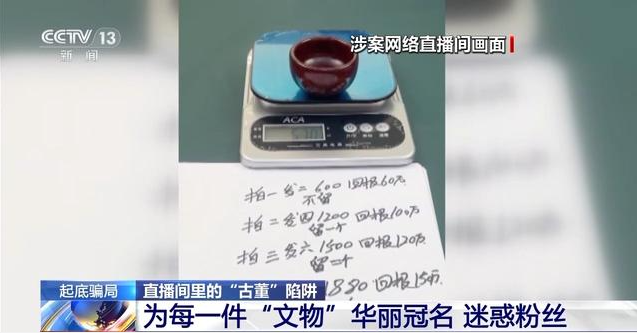 CCTV 13
新闻
涉案网络直播间画面
ACA
拍一发二 600 回报60万
不留
拍二发四 1200 回报100万
留一个
拍三发六 1500 回报120万
留一个
1880 回报15万
起底骗局
直播间里的“古董”陷阱
为每一件“文物”华丽冠名 迷惑粉丝